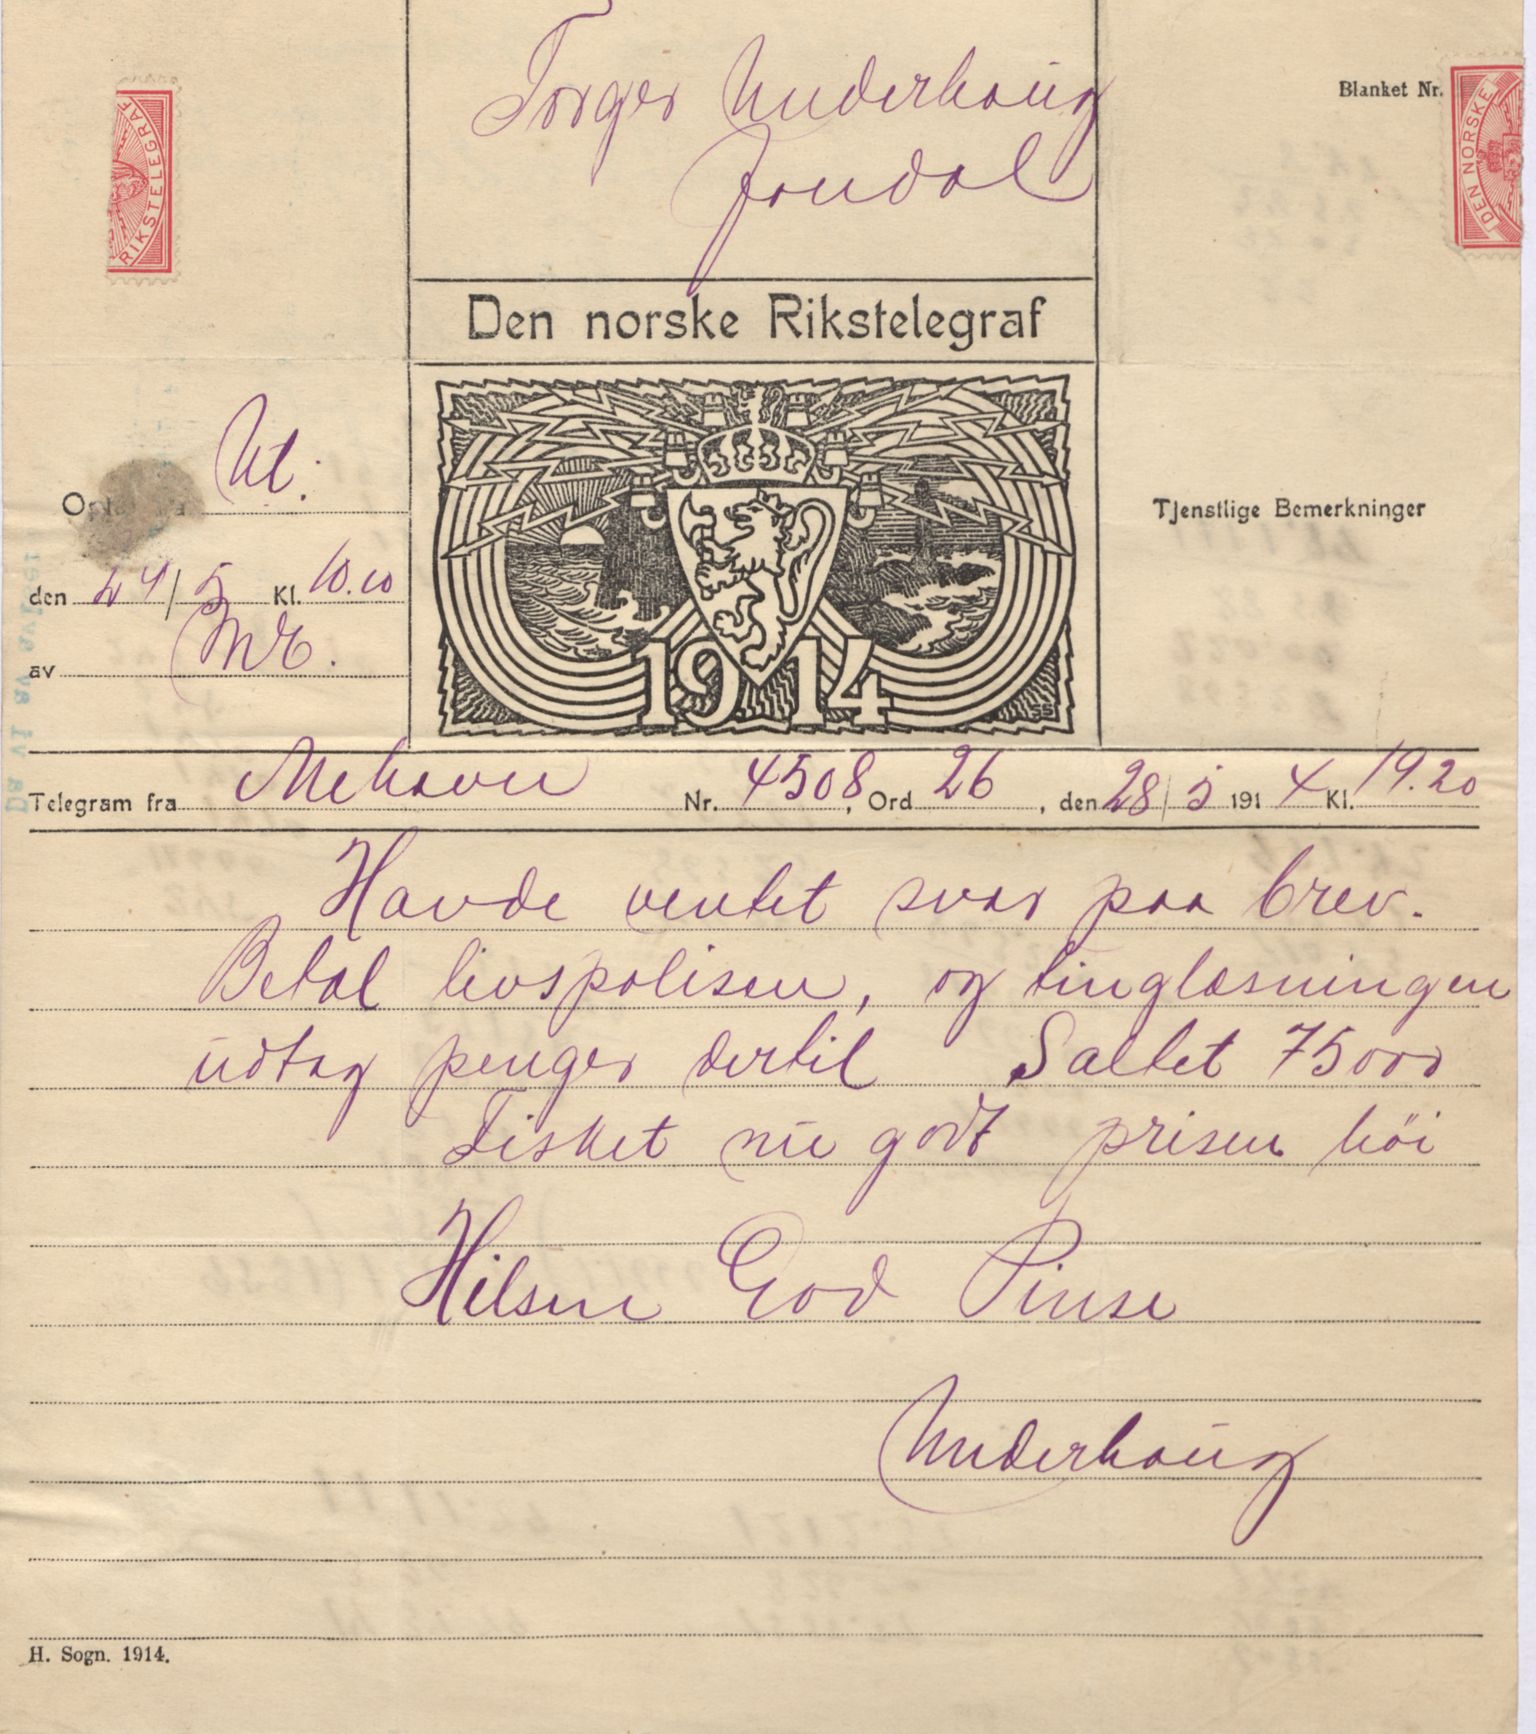 Torger Underhaug
Jondal
Blanket Nr.
RIKSTELEGRAF
DEN NORSKE
Den norske Rikstelegraf
1914
Ut.
Tjenstlige Bemerkninger
den 24/5 Kl. 10.10
av
Telegram fra Mehavn Nr. 4508, Ord 26, den 28/5 1914 Kl. 19.20
Havde ventet svar paa brev.
Betal livspolisen, og tinglæsningen
udtag penger dertil Saltet 75000
Fisket nu godt prisen höi
Hilsen God Pinse
Underhaug
H. Sogn. 1914.